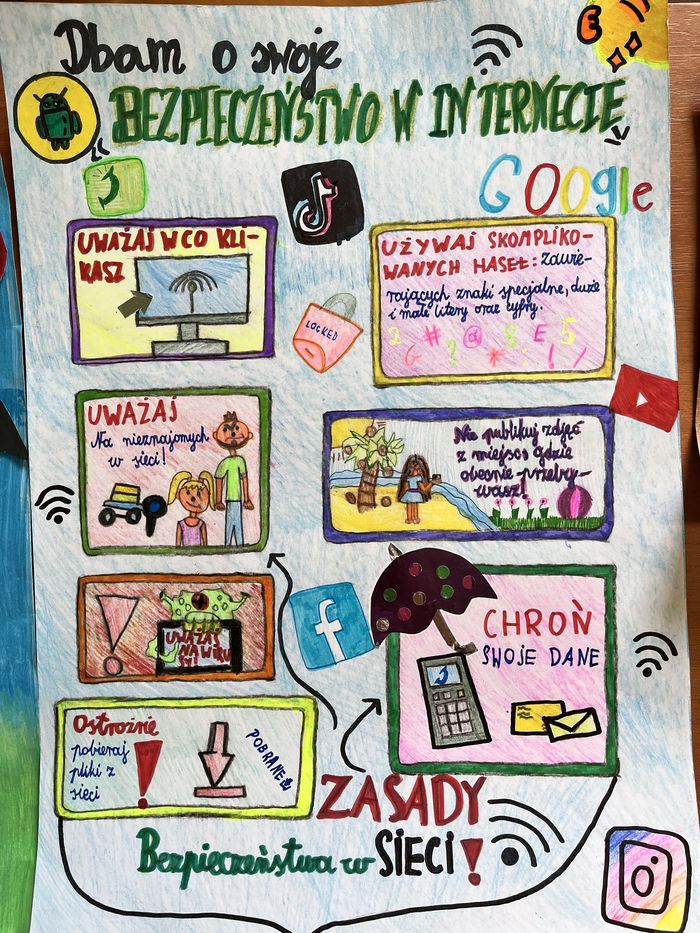 Dbam o swoje
BEZPIECZEŃSTWO W INTERNECIE
Google
UWAŻAJ W CO KLI-
KASZ
UŻYWAJ SKOMPLIKO-
WANYCH HASEŁ: zawie-
rających znaki specjalne, duże
i małe litery oraz cyfry.
2 # @ 8 E 5
G ? * : ! /
LOCKED
UWAŻAJ
Na nieznajomych
w sieci!
Nie publikuj zdjęć
z miejsc, gdzie
obecnie przeby-
wasz!
!
UWAŻAJ
NA WIRU
SY!
f
CHROŃ
SWOJE DANE
Ostrożnie
pobieraj
pliki z
sieci
!
POBRANE
ZASADY
Bezpieczeństwa w SIECI!